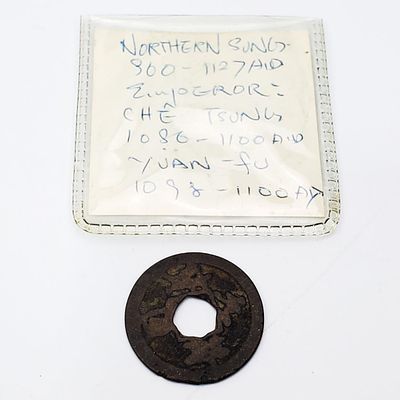 NORTHERN SUNG-
960-1127 A.D
EMPEROR:
CHÊ TSUNG
1086-1100 A.D
YÜAN-fU
1098-1100 AD